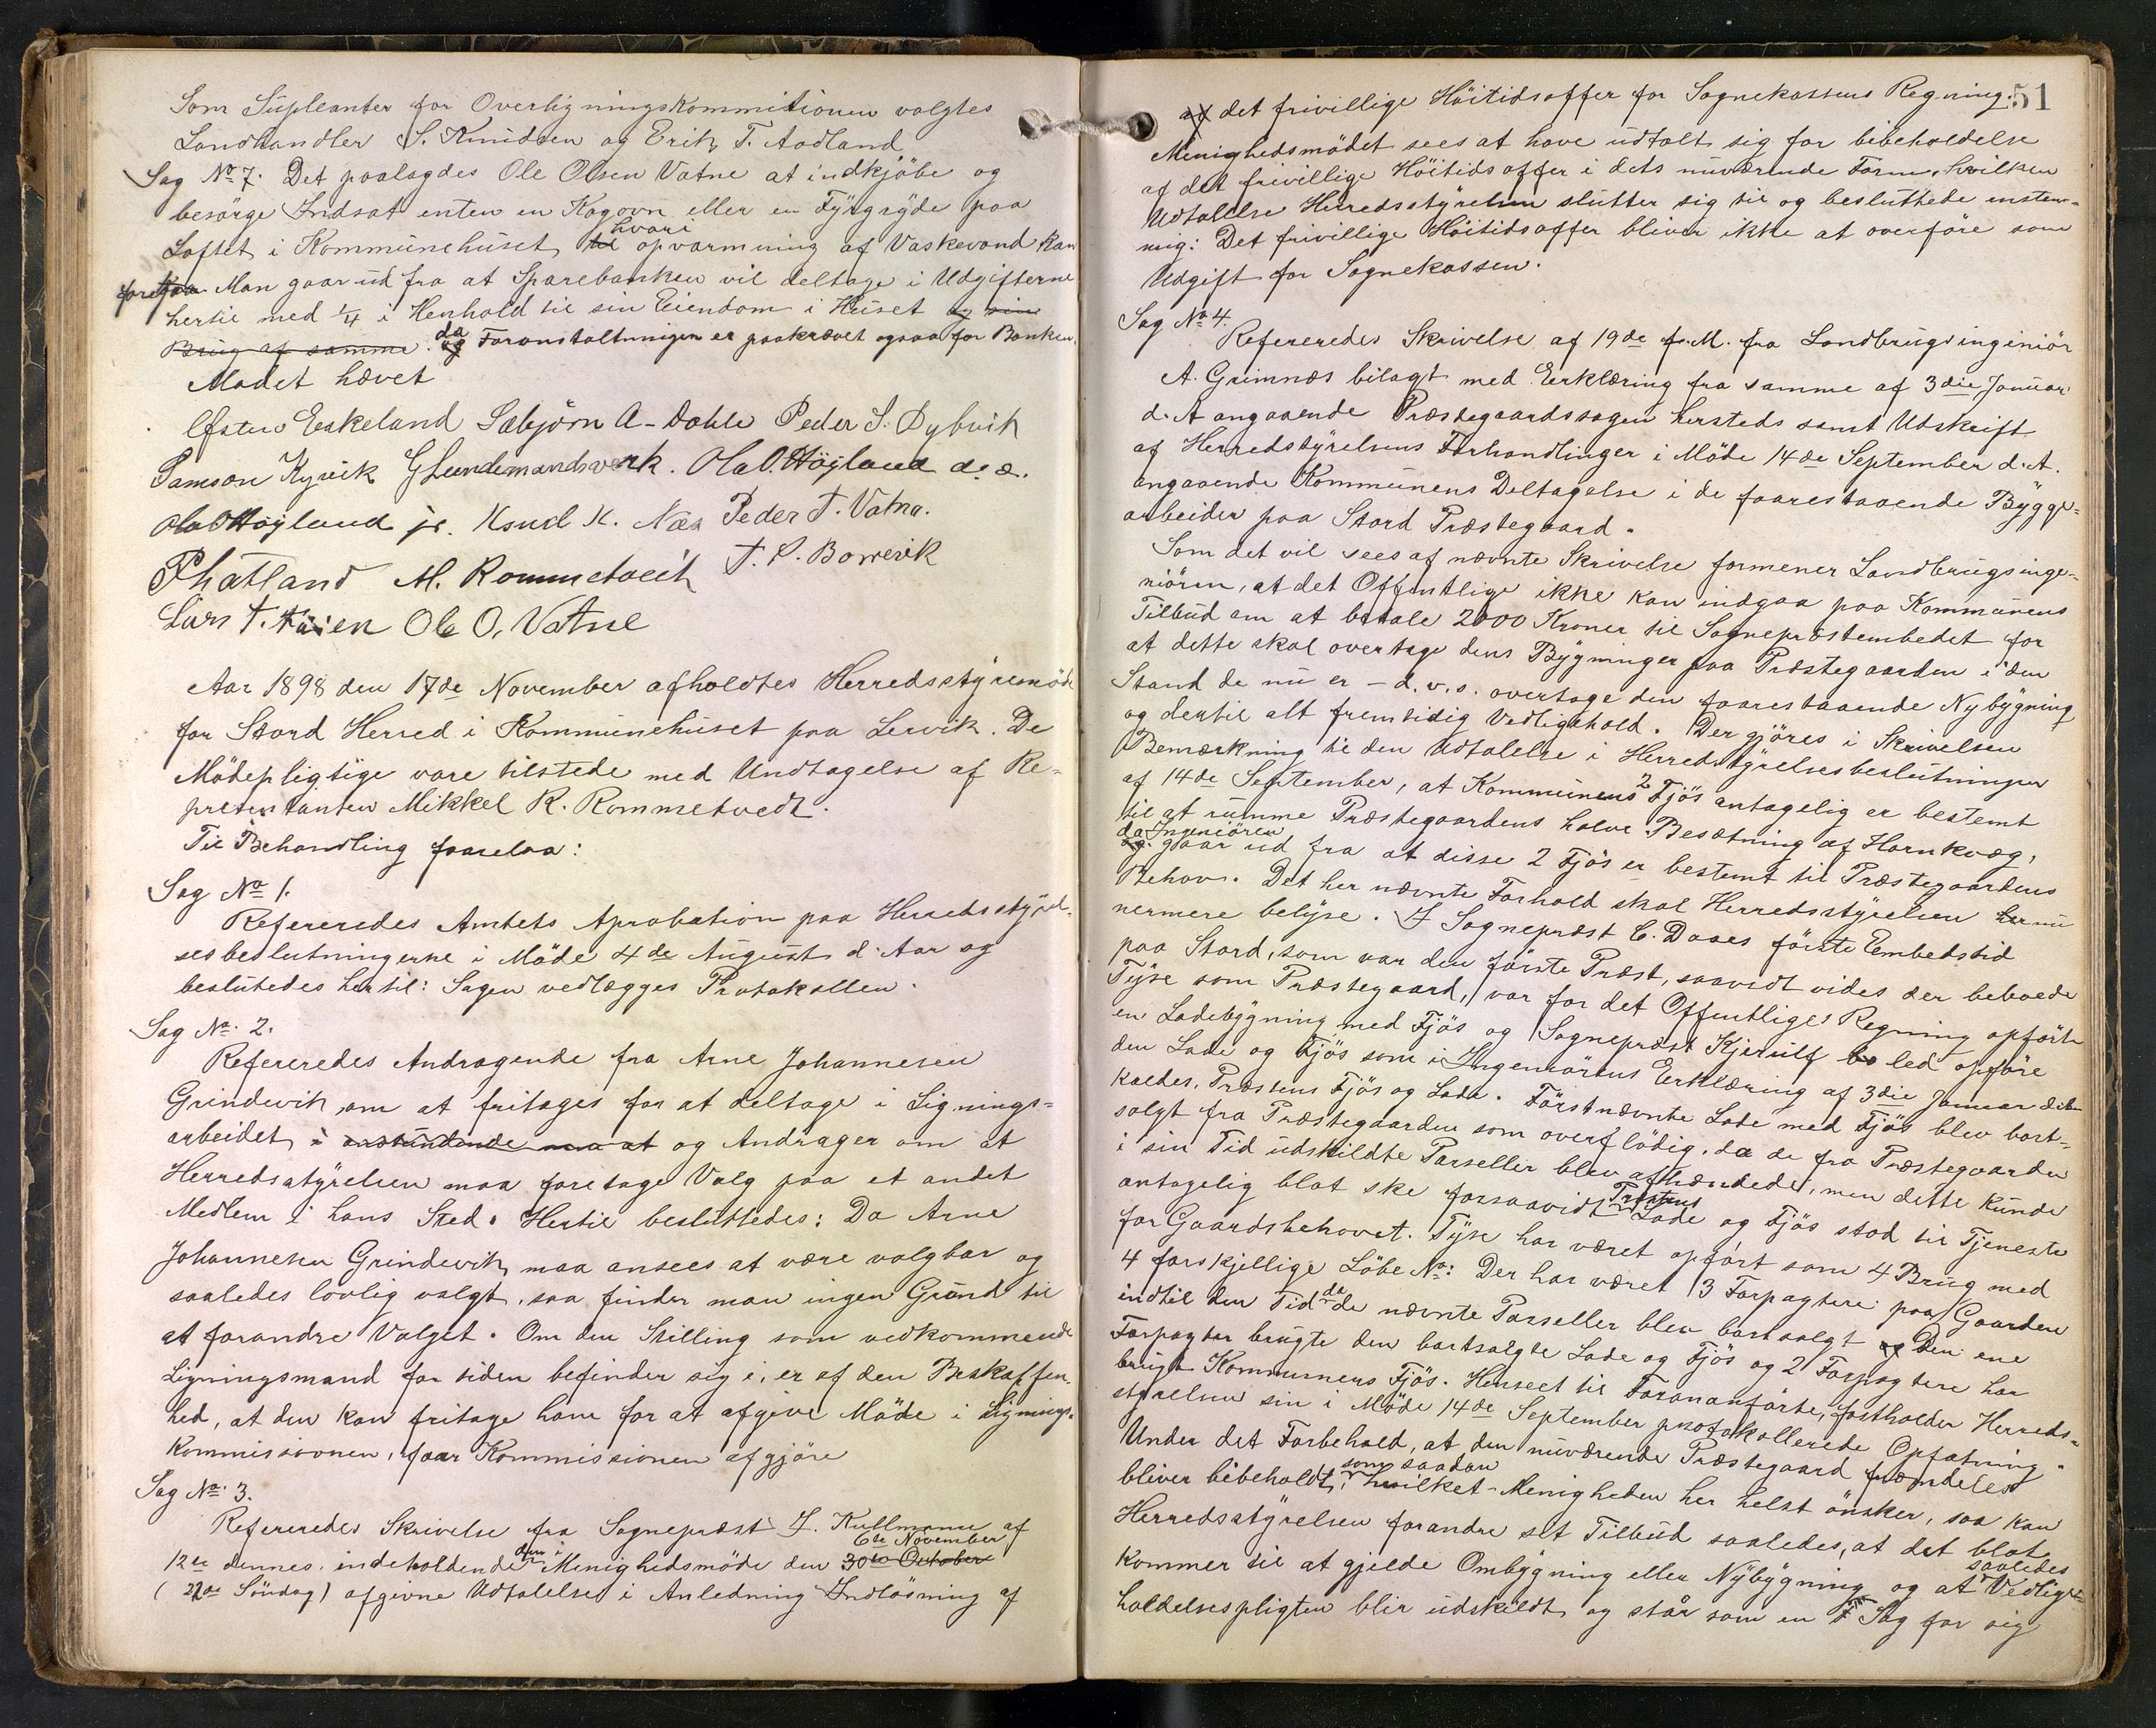 Som Supleanter for Overligningskommitionen valgtes
Landhandler S. Knudsen og Erik T. Aadland
Sag No 7. Det paalagdes Ole Olsen Vatne at indkjöbe og
besörge Indsat enten en Kogovn eller en Fyrgryde paa
Loftet i Kommunehuset, hvori opvarmning af Vaskevand kan
foretages. Man gaar ud fra at Sparebanken vil deltage i Udgifterne
hertil med 1/4 i Henhold til sin Eiendom i Huset og sin
Brug af samme. da Foranstaltningen er paakrævet ogsaa for Banken.
Mödet hævet
Östen Eskeland Sæbjörn A. Dahle Peder S. Dybvik
Samson Kyvik G Lundemandsverk. Ola O. Höyland d.æ.
Ola O Höyland jr. Knud K. Næs Peder T. Vatna.
P Hatland M. Rommetveit T. S. Borrevik
Lars T. Tveien Ole O. Vatne
Aar 1898 den 17de November afholdtes Herredsstyremöde
for Stord Herred i Kommunehuset paa Lervik. De
Mödepligtige vare tilstede med Undtagelse af Re-
presentanten Mikkel K. Rommetvedt.
Til Behandling forelaa:
Sag No 1.
Refereredes Amtets Aprobation paa Herredsstyrel-
sesbeslutningerne i Möde 4de August d. Aar og
beslutedes hertil: Sagen vedlægges Protokollen.
Sag No. 2.
Refereredes Andragende fra Arne Johannesen
Grindevik om at fritages for at deltage i Lignings-
arbeidet, i anstundende maa at og Andrager om at
Herredsstyrelsen maa foretage Valg paa et andet
Medlem i hans Sted. Hertil besluttedes: Da Arne
Johannesen Grindevik maa ansees at være valgbar og
saaledes lovlig valgt, saa finder man ingen Grund til
at forandre Valget. Om den Stilling som vedkommende
Ligningsmand for tiden befinder sig i, er af den Beskaffen-
hed, at den kan fritage ham for at afgive Möde i Lignings-
kommissionen, faar Kommissionen afgjöre
Sag No. 3.
Refereredes Skrivelse fra Sogneprest J. Kullmann af
12te dennes, indeholdende den i Menighedsmöde den 30te October 6te November
(22de Söndag) afgivne Udtalelse i Anledning Indlösning af
51
af det frivillige Höitidsoffer for Sognekassens Regning.
Menighedsmödet sees at have udtalt sig for bibeholdelse
af det frivillige Höitidsoffer i dets nuværende Form, hvilken
Udtalelse Herredsstyrelsen slutter sig til og besluttede enstem-
mig: Det frivillige Höitidsoffer bliver ikke at overföre som
Udgift for Sognekassen.
Sag No 4.
Refereredes Skrivelse af 19de f.M. fra Landbrugsingeniör
A. Grimnæs bilagt med Eerklæring fra samme af 3die Januar
d. A angaaende Præstegaardssagen hersteds samt Udskrift
af Herredstyrelsens Forhandlinger i Möde 14de September d. A.
angaaende Kommunens Deltagelse i de foarestaaende Bygge-
arbeider paa Stord Præstegaard.
Som det vil sees af nævnte Skrivelse formener Landbrugsinge-
niören, at det Offentlige ikke kan indgaa paa Kommunens
Tilbud om at betale 2000 Kroner til Sognepræstembedet for
at dette skal overtage dens Bygninger paa Præstegaarden i den
Stand de nu er - d.v.s. overtage den foarestaaende Nybygning
og dertil alt fremtidig Vedligehold. Der gjöres i Skrivelsen
Bemærkning til den Udtalelse i Herredsstyrelsesbeslutningen
af 14de September, at Kommunens 2 Fjös antagelig er bestemt
til at rumme Præstegaardens halve Besætning af Hornkvæg,
da Ingeniören gaar ud fra at disse 2 Fjös er bestemt til Præstegaardens
Behov. Det her nævnte Forhold skal Herredsstyrelsen her nu
nermere belyse. I Sognepræst C. Daaes förste Embedstid
paa Stord, som var den förste Præst, saavidt vides der beboede
Tyse som Præstegaard, var for det Offentliges Regning opfört
en Ladebygning med Fjös og Sognepræst Kjerulf lod opföre
den Lade og Fjös som i Ingeniörens Eerklæring af 3die Januar
kaldes, Præstens Fjös og Lade. Förstnævnte Lade med Fjös blev bort-
solgt fra Præstegaarden som overflödig, da de fra Præstegaarden
i sin Tid udskildte Parseller blev afhændede, men dette kunde
antagelig blot ske forsaavidt Præstens Lade og Fjös stod til Tjeneste
for Gaardsbehovet. Tyse har været opfört som 4 Brug med
4 forskjellige Löbe No: Der har været 3 Forpagtere paa Gaarden
indtil den Tid da de nævnte Parseller blev bortsolgt og Den ene
Forpagter brugte den bortsolgte Lade og Fjös og 2 Forpagtere har
brugt Kommunens Fjös. Henseet til Forananförte, fastholder Herreds-
styrelsen sin i Möde 14de September protokollerede Opfatning.
Under det Forbehold, at den nuværende Præstegaard fremdeles
bliver bibeholdt, som saadan hvilket Menigheden her helst önsker, saa kan
Herredsstyrelsen forandre sit Tilbud saaledes, at det blot
kommer til at gjelde Ombygning eller Nybygning og at saaledes Vedlige-
holdelsespligten blir udskildt og står som en Sag for sig